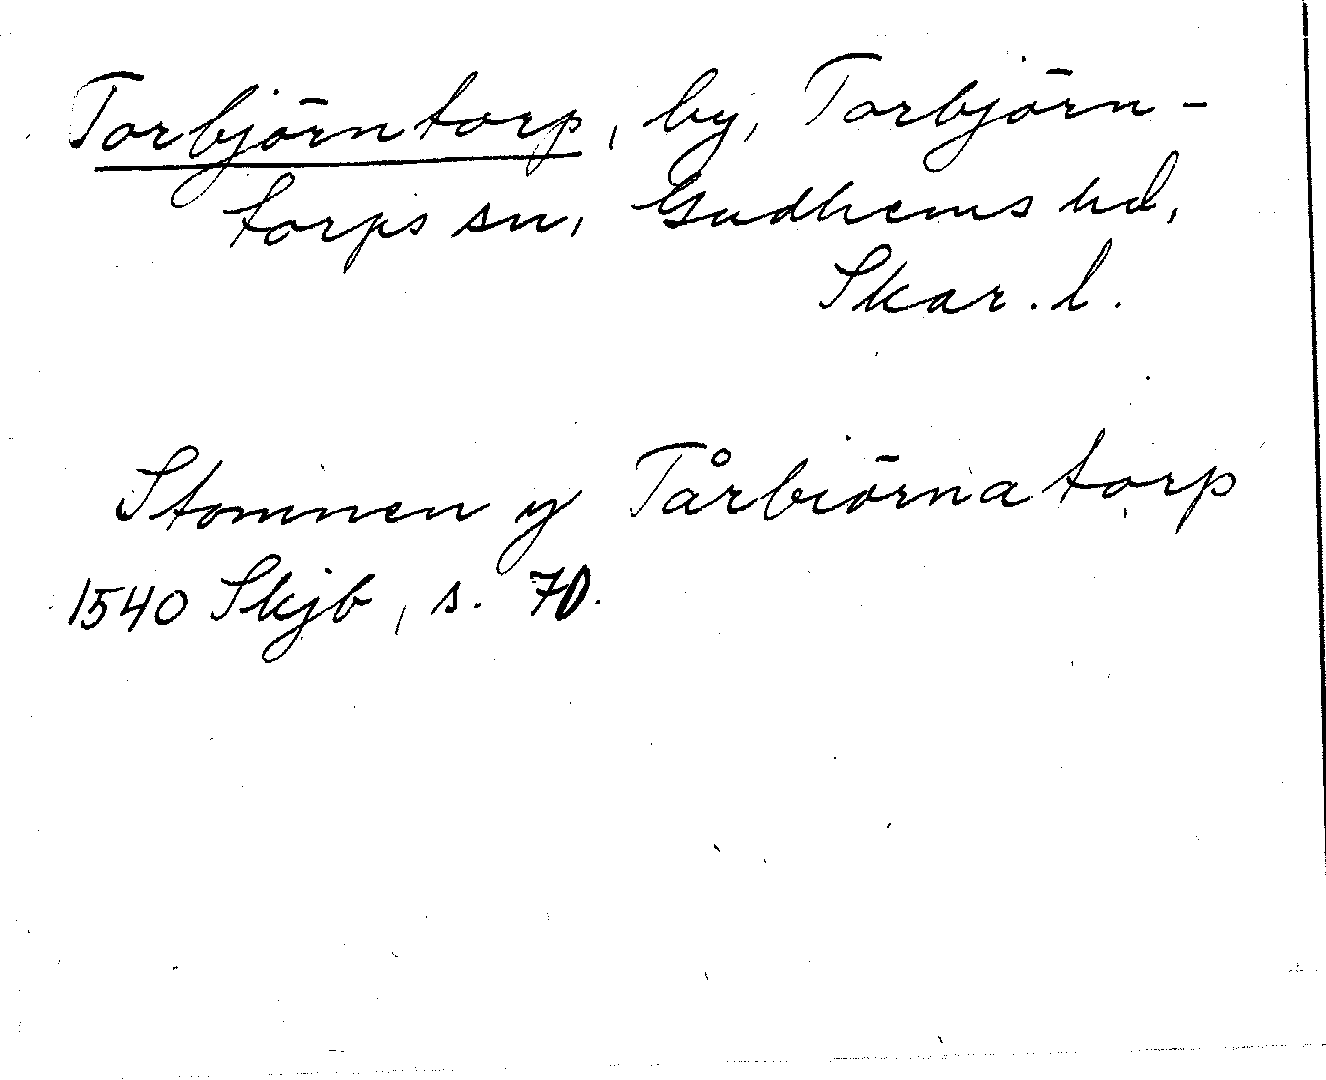 Torbjörntorp, by, Torbjörn-
torps sn, Gudhems hd,
Skar. l.
Stomnen y Tårbiörna torp
1540 Skjb, s. 70.